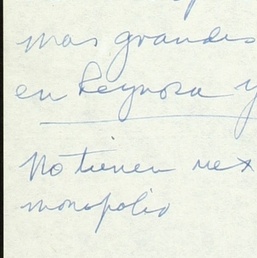 mas grandes
en Reynosa y
No tienen nex
monopolio